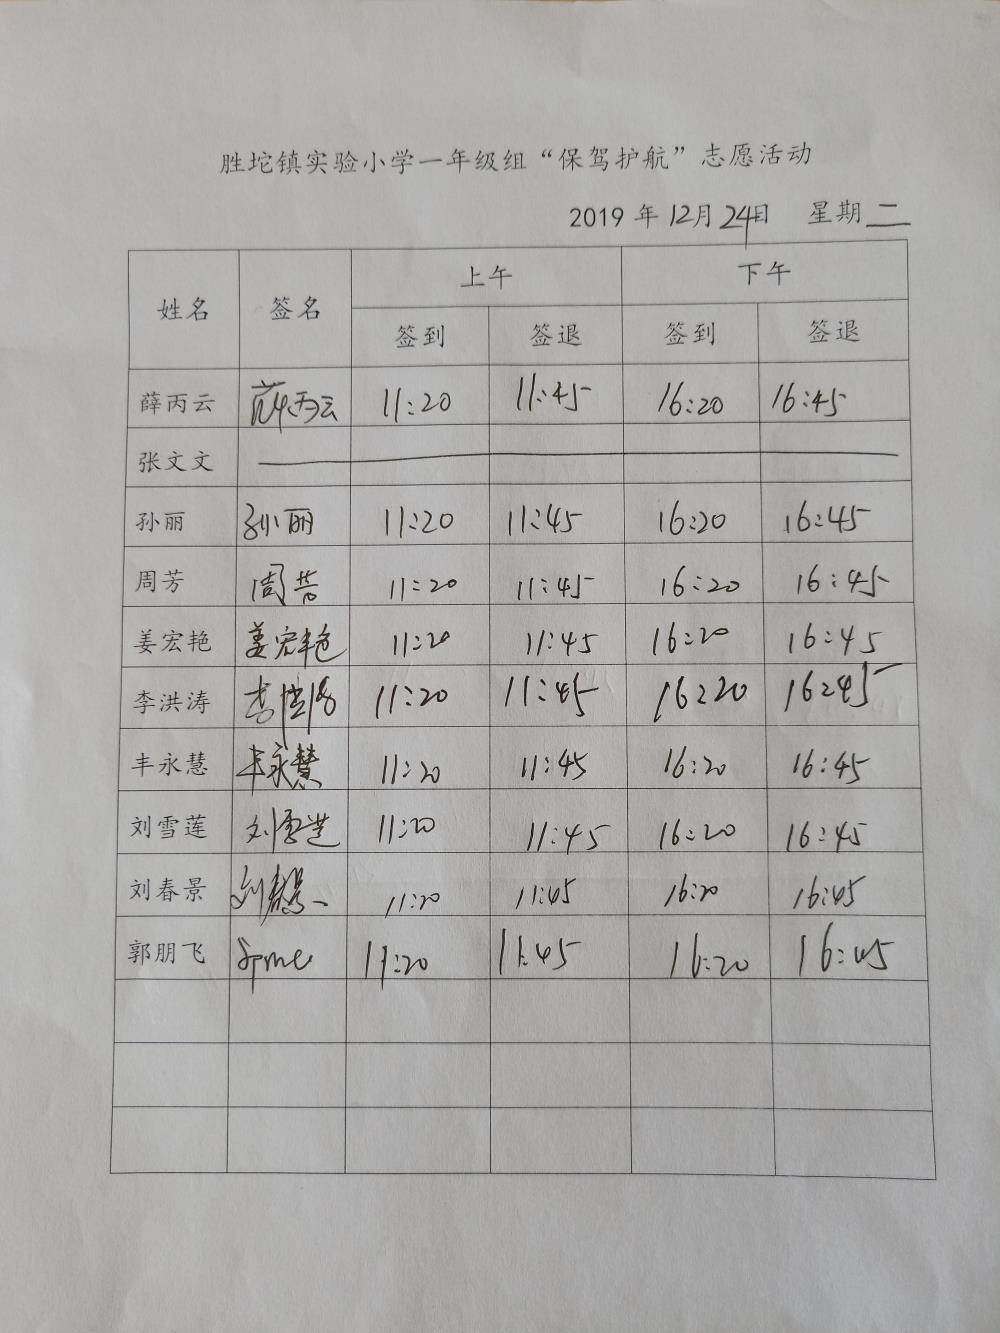 胜坨镇实验小学一年级组“保驾护航”志愿活动
2019 年 12月 24日 星期 二
姓名 签名 上午 下午
签到 签退 签到 签退
薛丙云 薛丙云 11:20 11:45 16:20 16:45
张文文
孙丽 孙丽 11:20 11:45 16:20 16:45
周芳 周芳 11:20 11:45 16:20 16:45
姜宏艳 姜宏艳 11:20 11:45 16:20 16:45
李洪涛 李洪涛 11:20 11:45 16:20 16:45
丰永慧 丰永慧 11:20 11:45 16:20 16:45
刘雪莲 刘雪莲 11:20 11:45 16:20 16:45
刘春景 刘春景 11:20 11:45 16:20 16:45
郭朋飞 11:20 11:45 16:20 16:45